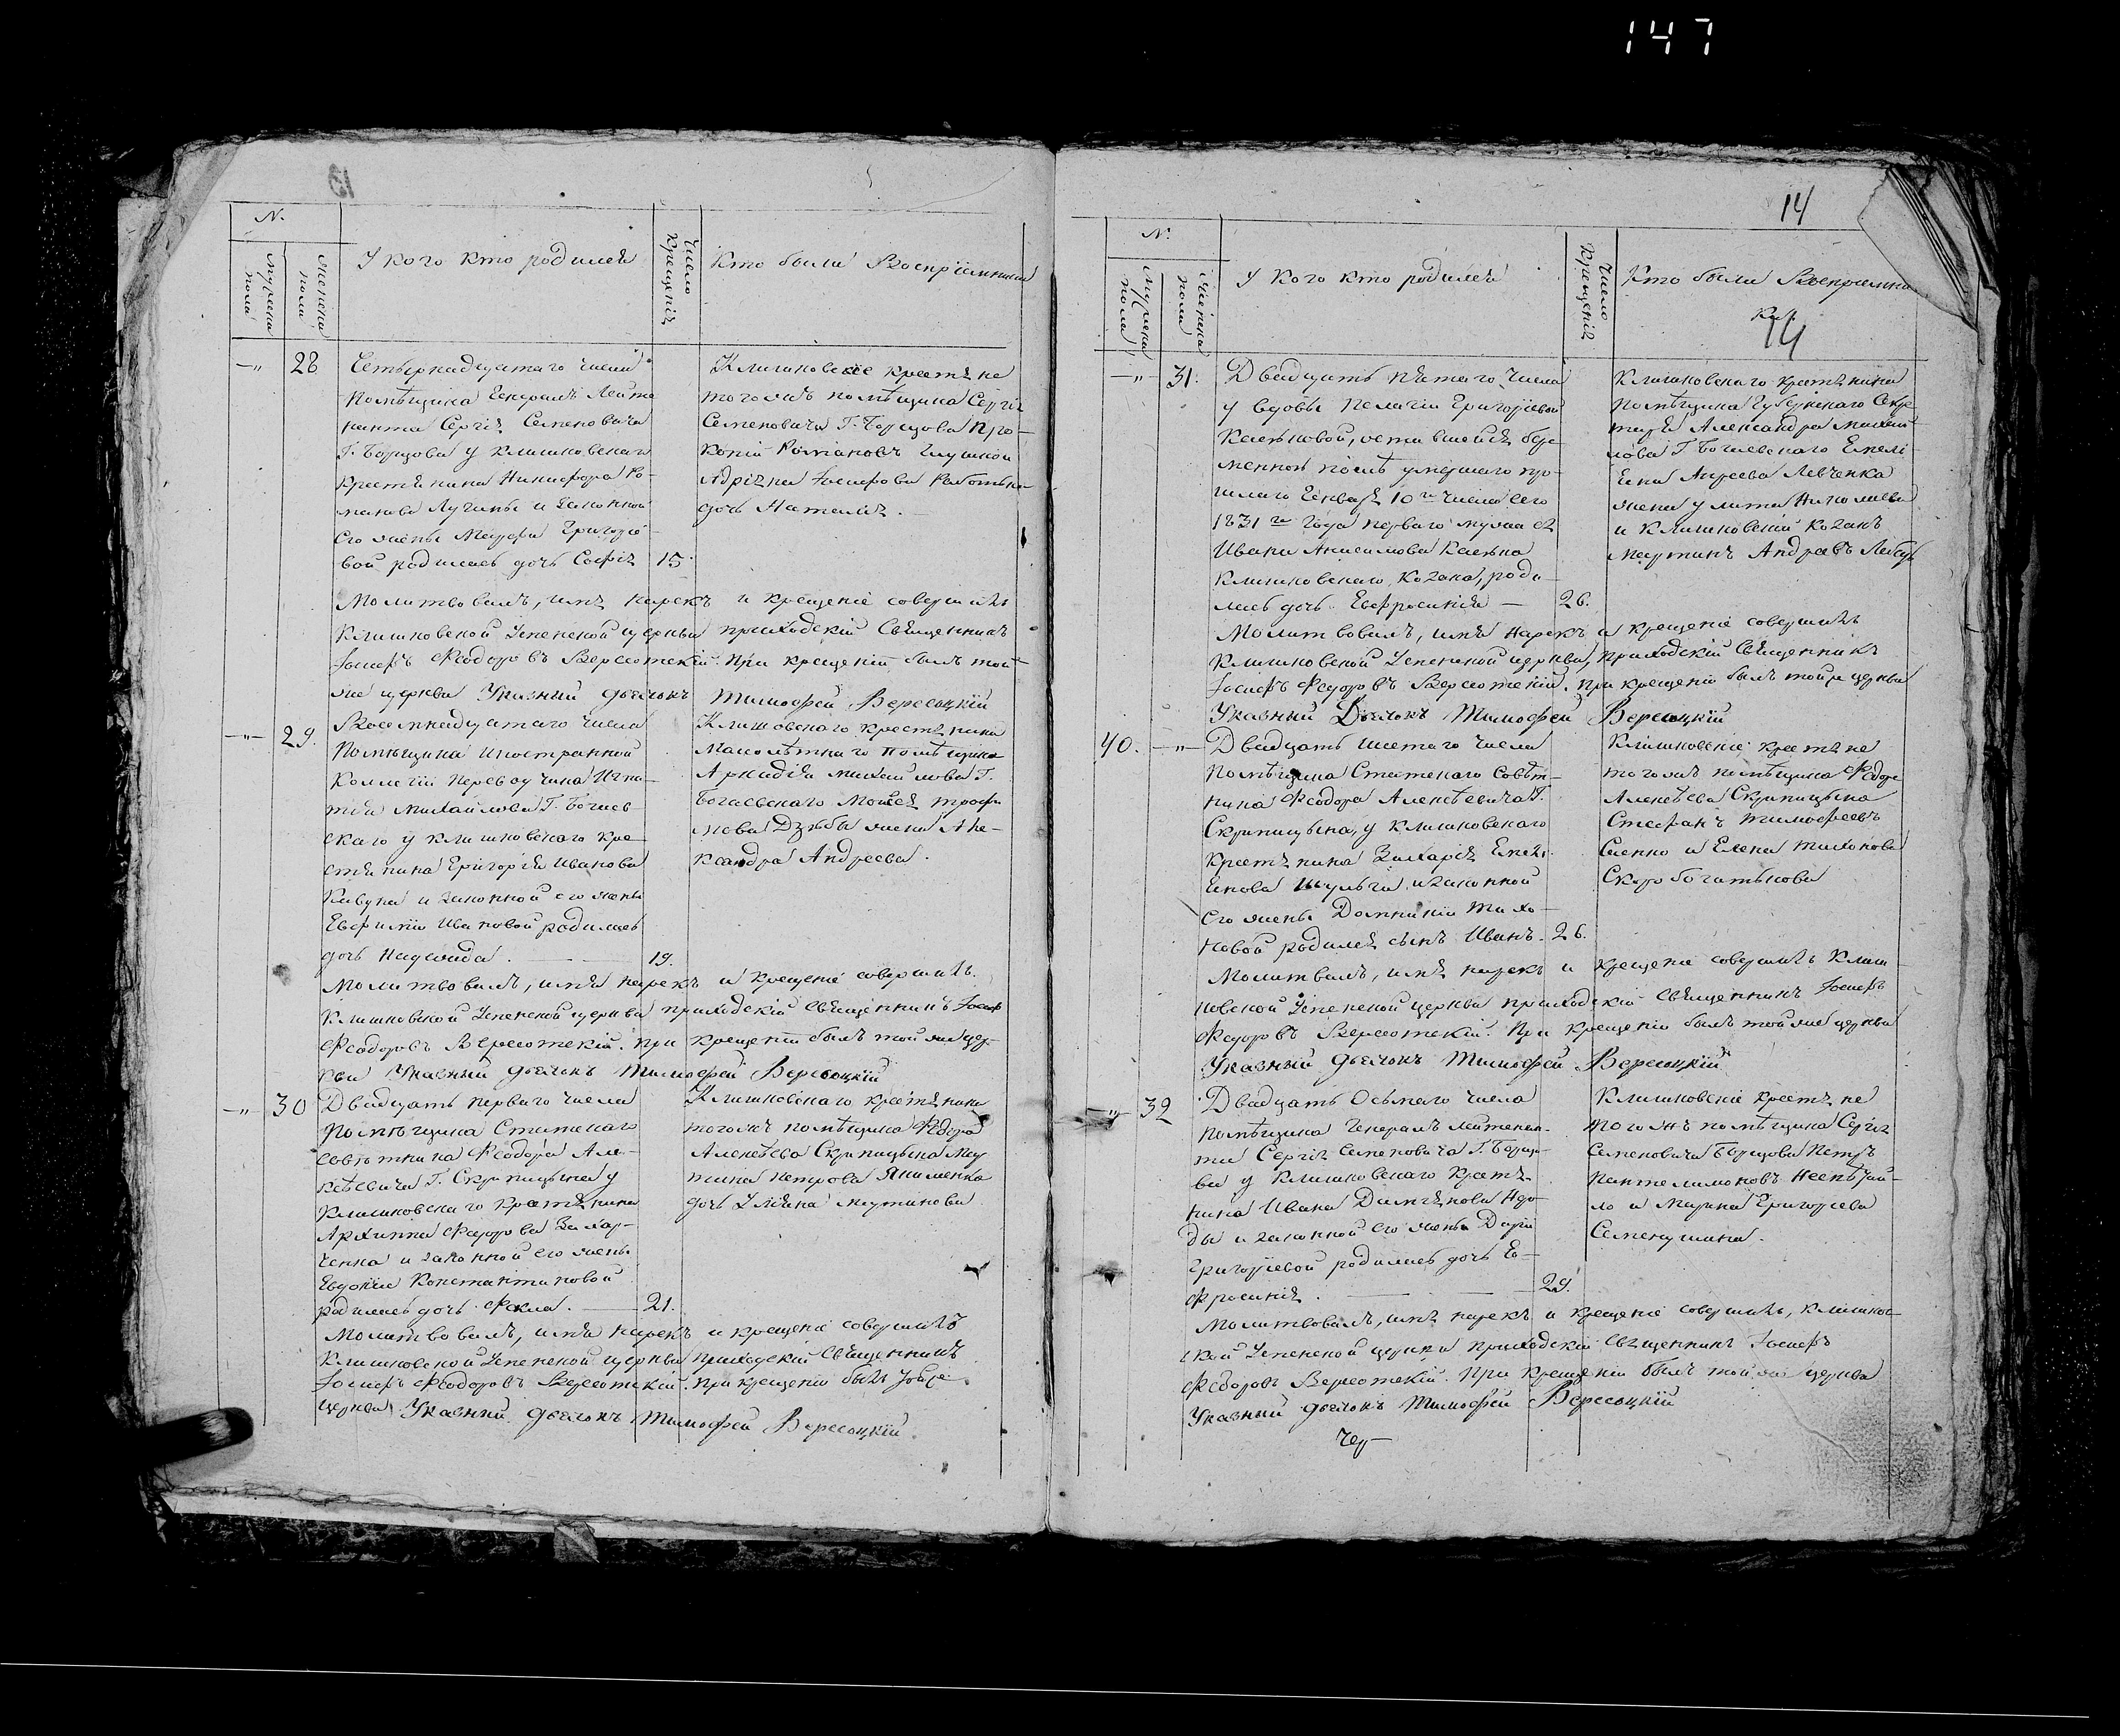 147
14
N.
Мужеска пола
Женска пола
У кого кто родился
Число Крещенія
Кто были Воспріемники
28
Четырнадцатаго числа
помѣщика Генералъ Лейте
нанта Сергія Семеновича
Г. Борщова у клишковскаго
крестянина Никифора Ро-
манова Лучины и законной
его жены Марфы Григорiе-
вой родилась дочь Софія 15.
Клишковскіе крестяне
тогожъ помѣщика Сергія
Семеновича Г. Борщова Про-
копій Романовъ
Адріяна Іосифова
дочь Наталія.
Молитвовалъ, имя нарекъ и крещеніе совершилъ
Клишковской Успенской церкви приходскій Священникъ
Іосифъ Феодоровъ Вересотскій. При крещеніи былъ той
же церкви Указный дьячокъ Тимофей Вересоцкій
29.
Восемнадцатаго числа
Помѣщика Иностранной
Коллегіи переводчика Игна-
тія Михайлова Г. Богаев
скаго у клишковскаго кре
стянина Григорія Иванова
Кавуна и законной его жены
Евфиміи Ивановой родилась
дочь Надежда. 19.
Клишковскаго крестянина
Малолѣтнаго помѣщика
Аркадія Михайлова Г.
Богаевскаго Моисея Трофи
мова Дзюбы жена Але-
ксандра Андреева.
Молитвовалъ, имя нарекъ и крещеніе совершилъ
Клишковской Успенской церкви приходскій Священникъ Іосифъ
Феодоровъ Вересотскій. При крещеніи былъ той же цер-
кви Указный дьячокъ Тимофей Вересоцкій
30
Двадцать перваго числа
Помѣщика Статскаго
совѣтника Феодора Але-
ксѣевича Г. Скрипицына у
Клишковскаго крестянина
Архиппа Федорова Захар-
ченка и законной его жены
Евдокіи Константиновой
родилась дочь Фекла. 21.
Клишковскаго крестянина
тогожъ помѣщика Федора
Алексѣева Скрипицына Мар
тина Петрова Якименка
дочь Уліяна Мартинова
Молитвовалъ, имя нарекъ и крещеніе совершилъ
Клишковской Успенской церкви приходскій Священникъ
Іосифъ Феодоровъ Вересотскій. При крещеніи былъ
церкви Указный дьячокъ Тимофей Вересоцкій.
N.
Мужеска пола
Женска пола
У кого кто родился
Число Крещенія
Кто были Воспріемни
ки.
14
31.
Двадцать пятаго числа
у вдовы Пелагіи Григоріевой
оставшейся бере
менной послѣ умершаго про
шлаго Генваря 10го числа сего
1831го года перваго мужа ея
Ивана Анисимова
клишковскаго козака, роди-
лась дочь Евфросинія — 26.
Клишковскаго крестянина
Помѣщика Губернскаго Секре
таря Александра Михай-
лова Г. Богаевскаго Емелі-
яна Андреева Левченка
жена Улита Николаева
и Клишковскій Козакъ
Мартинъ Андреевъ
Молитвовалъ, имя нарекъ и крещеніе совершилъ
клишковской Успенской церкви, приходскій Священникъ
Іосифъ Федоровъ Вересотскій. При крещеніи былъ той же церкви
Указный Дьячокъ Тимофей Вересоцкій
40.
Двадцать шестаго числа
Помѣщика Статскаго Совѣт-
ника Феодора Алексѣевича Г.
Скрипицына, у клишковскаго
крестянина Захарія Емелі-
янова Шульги и законной
его жены Домникіи Тихо-
новой родился сынъ Иванъ. 26.
Клишковскіе крестяне
тогожъ помѣщика Федора
Алексѣева Скрипицына
Стефанъ Тимофеевъ
Саенко и Елена Тихонова
Скоробогатькова
Молитвалъ, имя нарекъ и крещеніе совершилъ Клиш-
ковской Успенской церкви приходскій Священникъ Іосифъ
Федоровъ Вересотскій. При крещеніи былъ той же церкви
Указный дьячокъ Тимофей Вересоцкій
32
Двадцать Осьмаго числа
помѣщика Генералъ Лейтенан-
та Сергія Семеновича Г. Борщо-
ва у Клишковскаго крестя-
нина Ивана Даміянова
и законной его жены Дарьи
Григоріевой родилась дочь Ев-
фросинія. 29.
Клишковскіе крестяне
тогожъ помѣщика Сергія
Семеновича Борщова Петръ
Пантелимоновъ
и Марина Григорьева
Семенушина.
Молитвовалъ, имя нарекъ и крещеніе совершилъ, клишков-
ской Успенской церкви приходскій Священникъ Іосифъ
Федоровъ Вересотскій. При крещеніи былъ той же церкви
Указный дьячокъ Тимофей Вересоцкій